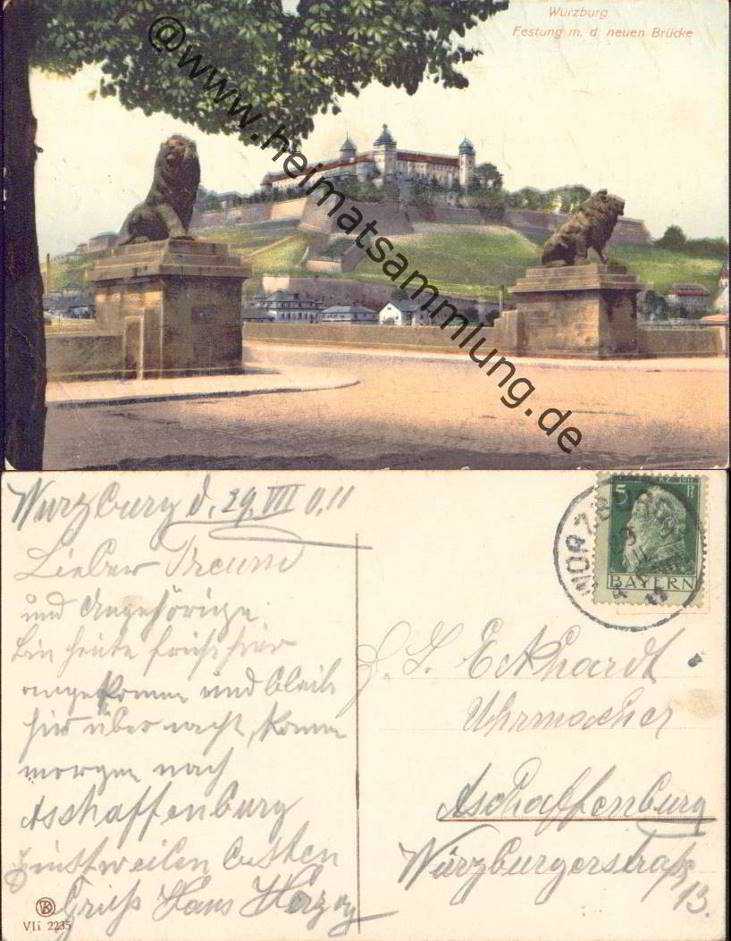 Würzburg
Festung m. d. neuen Brücke
@www.heimatsammlung.de
Würzburg d. 29. VIII 0.11
Lieber Freund
und Angehörige.
Bin heute früh hier
angekomme und bleib
hir über nacht, komme
morgen nach
Aschaffenburg
Einstweilen besten
Gruß Hans Herzog
VIi 2235
5 Pf
BAYERN
WÜRZB
Eckhardt
Uhrmacher
Aschaffenburg
Würzburgerstraße
13.